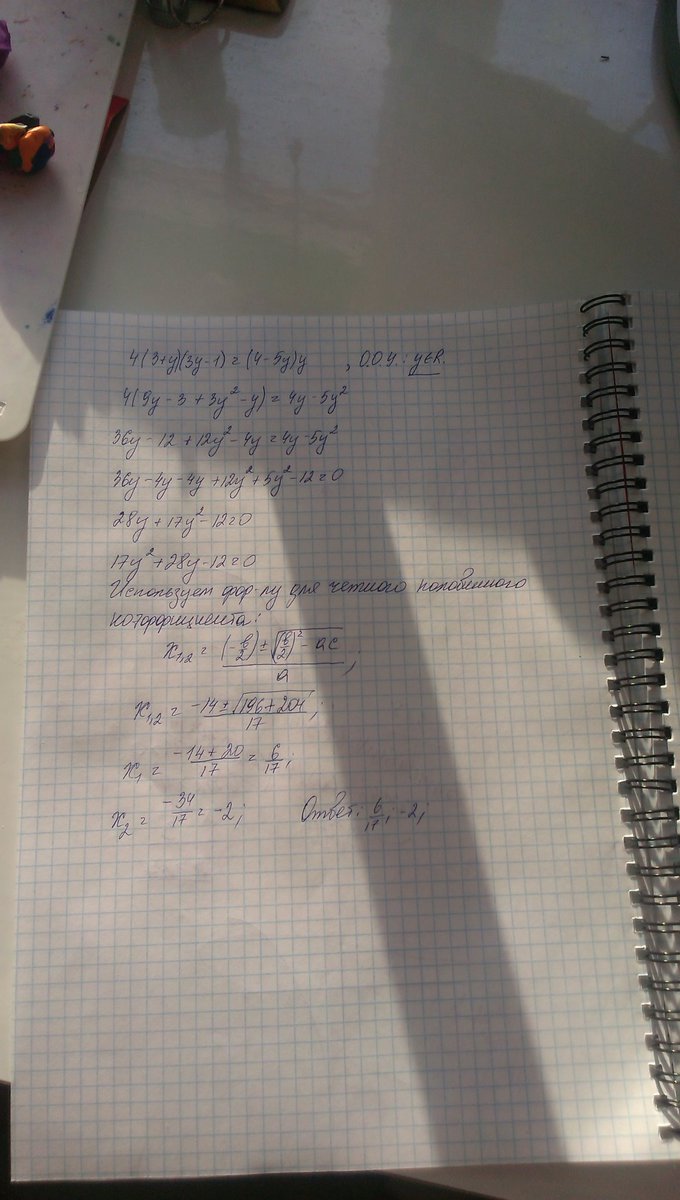 4(3+y)(3y-1) = (4-5y)y , О.О.У.: y∈R.
4(9y - 3 + 3y² - y) = 4y - 5y²
36y - 12 + 12y² - 4y = 4y - 5y²
36y - 4y - 4y + 12y² + 5y² - 12 = 0
28y + 17y² - 12 = 0
17y² + 28y - 12 = 0
Использует фор-лу для четного половинного
коэффициента:
x₁,₂ = ((-b/2) ± √((b/2)² - ac))/a ;
x₁,₂ = (-14 ± √(196 + 204))/17 ;
x₁ = (-14 + 20)/17 = 6/17 ;
x₂ = -34/17 = -2 ; Ответ: 6/17 ; -2 ;